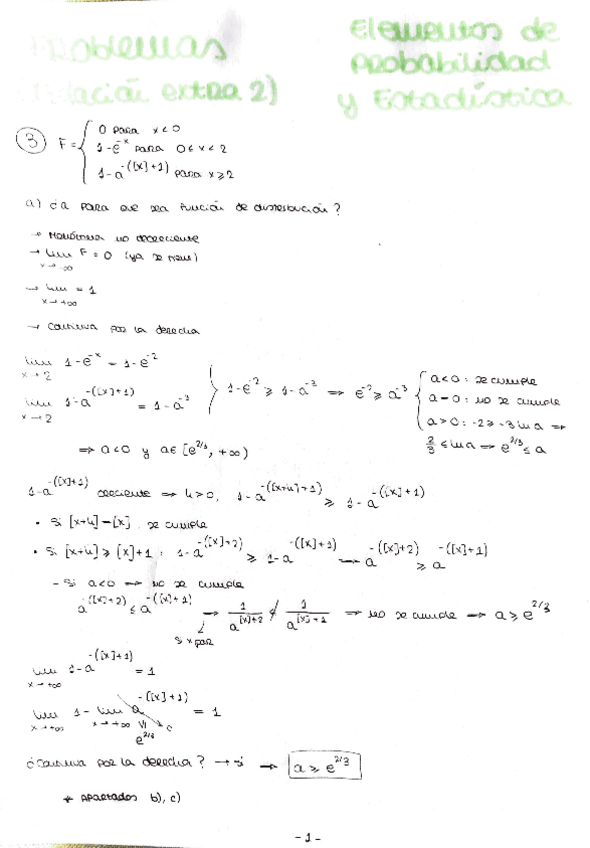 Problemas
(Relación extra 2)
Elementos de
Probabilidad
y Estadística
3 F = { 0 para x < 0
1-e^-x para 0 ≤ x < 2
1-a^-([x]+1) para x ≥ 2
a) ¿a para que sea función de distribución?
→ Monótona no decreciente
→ lim x→-∞ F = 0 (ya se tiene)
→ lim x→+∞ = 1
→ Continua por la derecha
lim x→2 1-e^-x = 1-e^-2
lim x→2 1-a^-([x]+1) = 1-a^-3
} 1-e^-2 ≥ 1-a^-3 ⇒ e^-2 ≥ a^-3 {
a<0: se cumple
a=0: no se cumple
a>0: -2 ≥ -3 ln a ⇒
2/3 ≤ ln a ⇒ e^2/3 ≤ a
⇒ a<0 y a∈[e^2/3, +∞)
1-a^-([x]+1) creciente ⇒ h>0, 1-a^-([x+h]+1) ≥ 1-a^-([x]+1)
• Si [x+h]=[x] se cumple
• Si [x+h] ≥ [x]+1 : 1-a^-([x]+2) ≥ 1-a^-([x]+1) → a^-([x]+2) ≥ a^-([x]+1)
- Si a<0 → no se cumple
a^-([x]+2) ≤ a^-([x]+1) → 1/a^[x]+2 ≰ 1/a^[x]+1 ⇒ no se cumple ⇒ a ≥ e^2/3
si x par
lim x→+∞ 1-a^-([x]+1) = 1
lim x→+∞ 1- lim x→+∞ a^-([x]+1) = 1
VI
e^2/3
¿Continua por la derecha? → si ⇒ a ≥ e^2/3
* Apartados b), c)
-1-